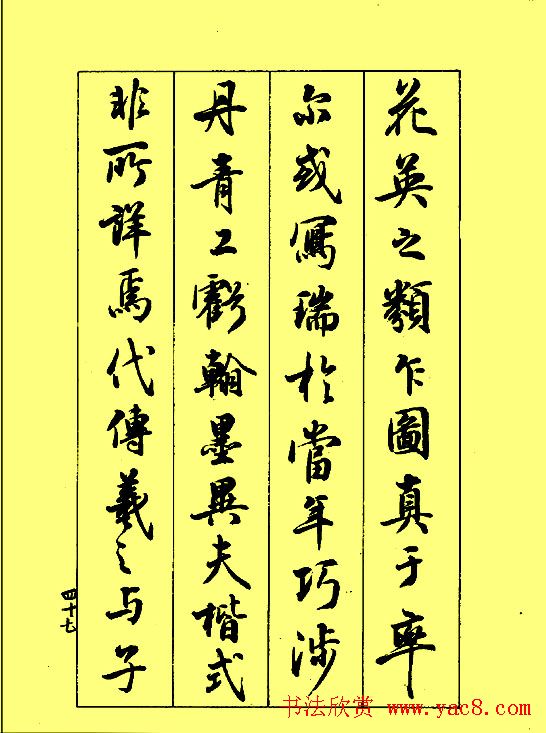 花英之類乍圖真于率
尔或寫瑞於當年巧涉
丹青工虧翰墨異夫楷式
非所詳焉代傳羲之与子
四十七
书法欣赏 www.yac8.com